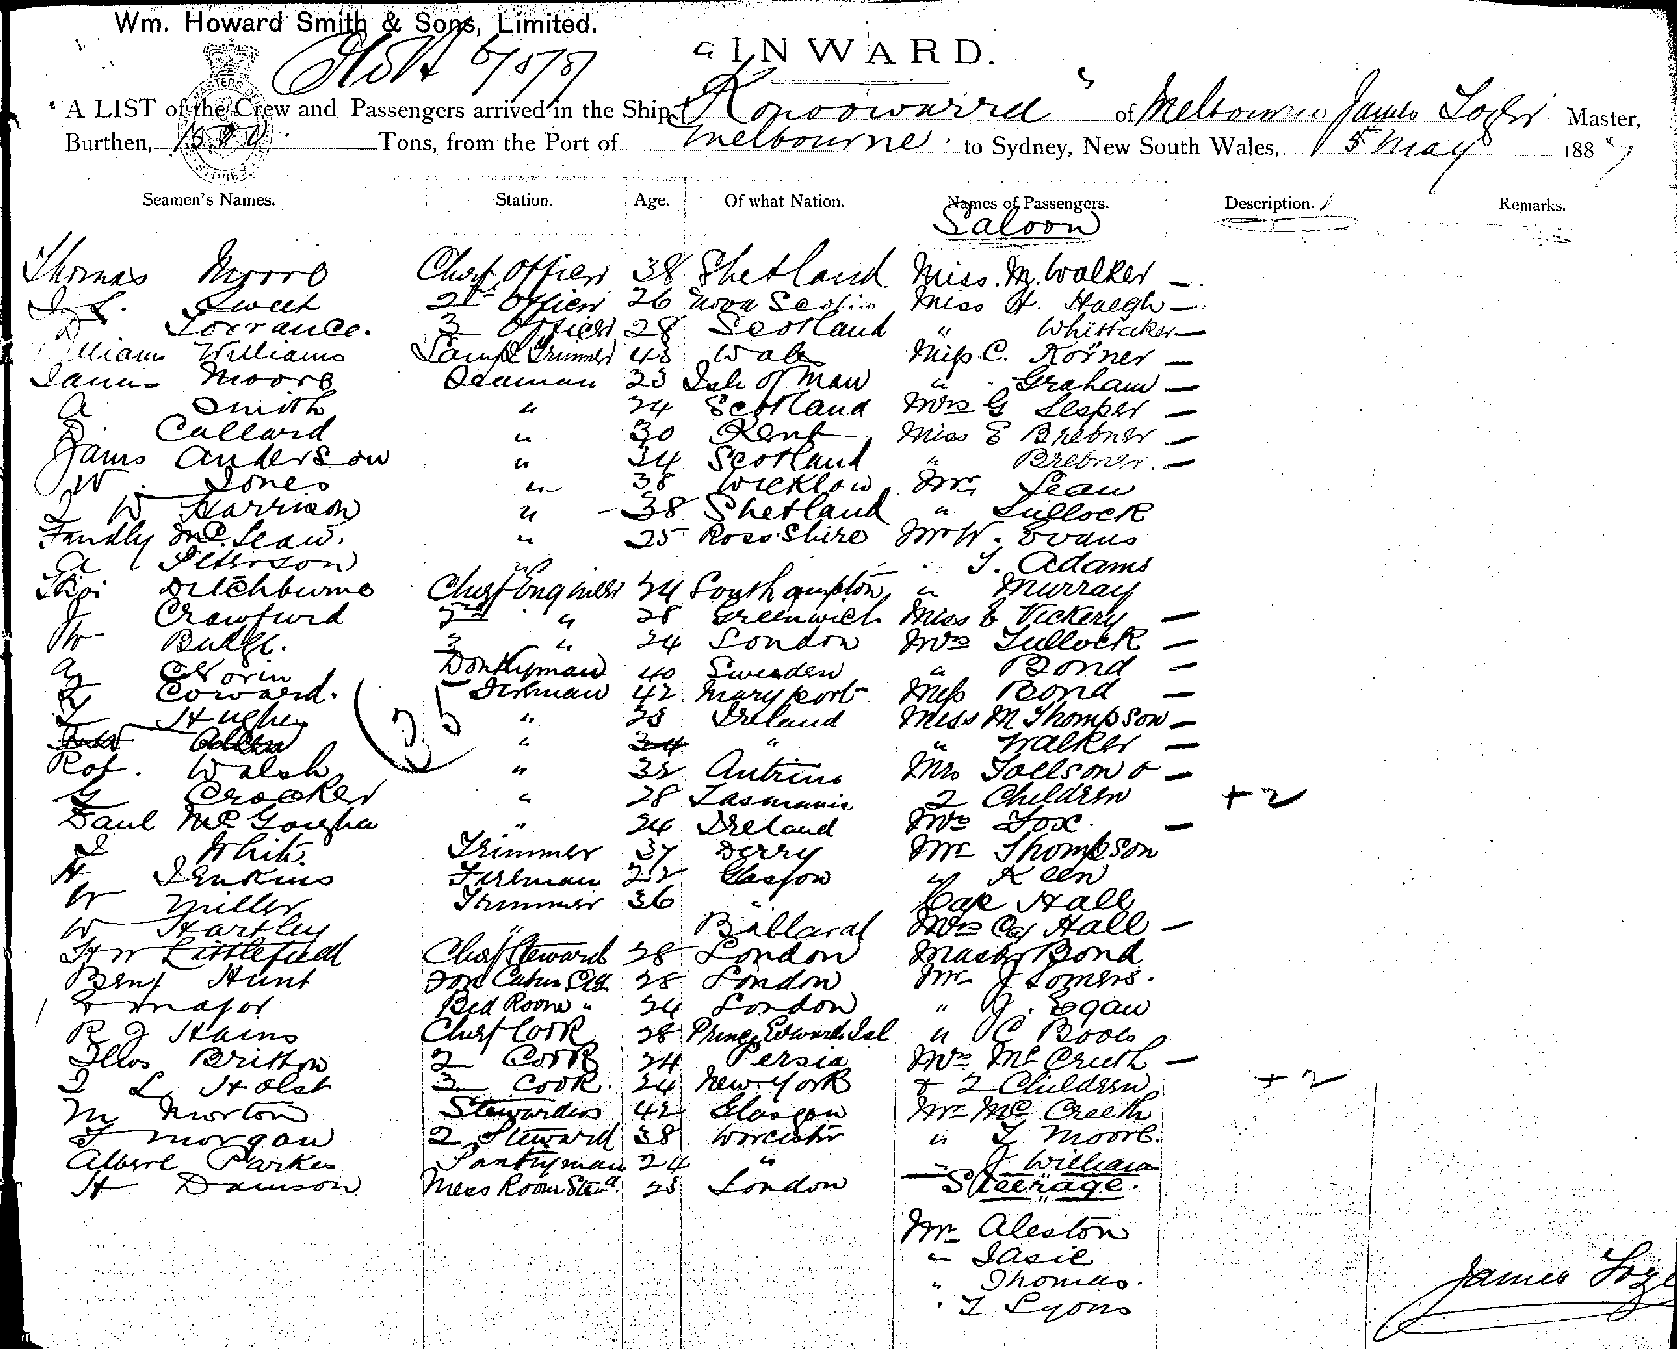 Wm. Howard Smith & Sons, Limited.
6/5/87
"INWARD.
A LIST of the Crew and Passengers arrived in the Ship "Konoowarra" of Melbourne James Master,
Burthen, Tons, from the Port of Melbourne to Sydney, New South Wales, 5 May 1887
Seamen's Names. Station. Age. Of what Nation. Names of Passengers. Description. Remarks.
Saloon
Thomas Moore Chief Officer 38 Shetland Miss. M. Walker —
Sweet 2nd Officer 26 Nova Scotia Miss H. Haegh —
Torrance. 3 Officer 28 Scotland " Whittaker —
William Williams Lamp Trimmer 48 Wales Miss C. Körner —
James Moore Seaman 23 Isle of Man " Graham —
A Smith " 24 Scotland Mrs G Lesper —
D. Callard " 30 Kent Miss E Brebner —
James Anderson " 34 Scotland " Brebner. —
W. Jones " 38 Wicklow Mr. Lean
J W Harrison " 38 Shetland " Tullock
Findly McLean. " 25 Ross Shire Mr W. Evans
A Peterson " T. Adams
Ditchburne Chief Engineer 34 Southampton " Murray
J Crawfurd 2nd " 28 Greenwich Miss E Vickery —
W 3 " 24 London Mrs Tullock —
Norin Donkeyman 40 Sweden " Bond —
Coward. Fireman 42 Maryport Miss Bond —
T Hughes " 28 Ireland Miss M Thompson —
Allen " 34 " " Walker —
Rot. Walsh " 32 Antrim Mrs Tollson & —
G Crocker " 28 Tasmania 2 Children + 2
Paul " 24 Ireland Mrs Fox —
J White Trimmer 37 Derry Mr Thompson
H Jenkins Fireman 22 Glasgow " Keen
W Miller Trimmer 36 " Cap Hall
W Hartley " Ballarat Mrs Cap Hall —
H W Littlefield Chief Steward 28 London Master Bond
Benj Hunt Fore Cabin 28 London Mr J Somers.
Major Bed Room " 24 London " J. Egan
R J Hains Chief Cook 28 Prince Edwards Isl " C Boots
Britton 2 Cook 24 Persia Mrs McCruth —
J L Holst 3 Cook. 24 New York + 2 Children + 2
M Morton Stewardess 42 Glasgow Mr McCreeth
F Morgan 2 Steward 38 Worcester " T Moore.
Albert Parker Pantryman 24 " " J William
H Dawson Mess Room Stewd 28 London Steerage.
Mr Aleston
"
" Thomas.
" T Lyons
James